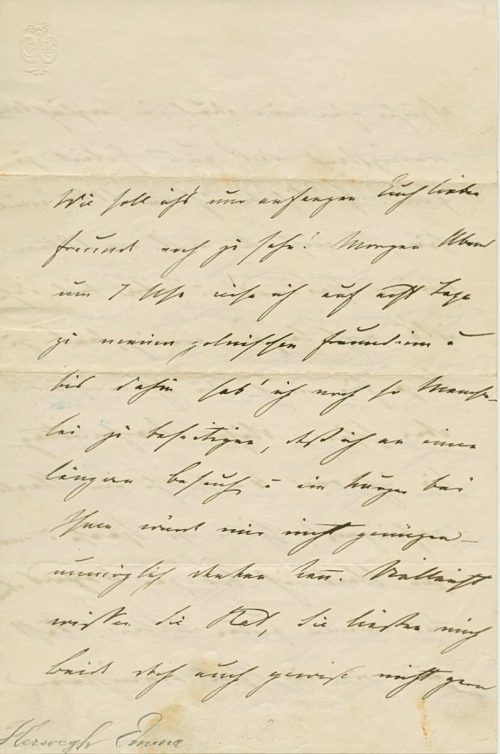 Wie soll ich's nur anfangen Euch liebe
Freunde noch zu sehn! Morgen Abend
um 7 Uhr reise ich auf acht Tage
zu meinen polnischen Freunden u
bis dahin hab' ich noch so Mancher-
lei zu beseitigen, daß ich an einen
längern Besuch, u ein kurzer bei
Ihnen würde mir nicht genügen –
unmöglich denken kann. Vielleicht
wissen Sie Rat, Sie ließen mich
beide doch auch gewiß nicht gern
Herwegh Emma